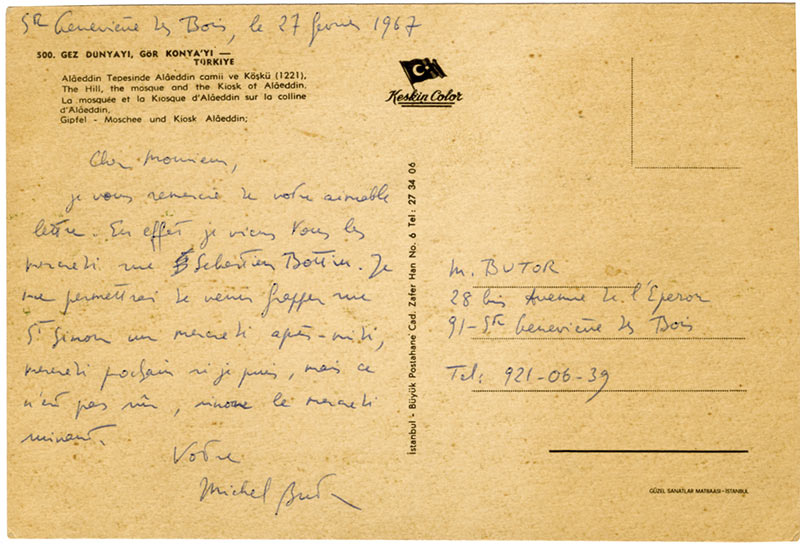 Ste Geneviève des Bois, le 27 février 1967
500. GEZ DÜNYAYI, GÖR KONYA'YI —
TÜRKİYE
Alâeddin Tepesinde Alâeddin camii ve Köşkü (1221),
The Hill, the mosque and the Kiosk of Alâeddin.
La mosquée et la Kiosque d'Alâeddin sur la colline
d'Alâeddin,
Gipfel - Moschee und Kiosk Alâeddin;
Keskin Color
Cher Monsieur,
je vous remercie de votre aimable
lettre. En effet je viens tous les
mercredi rue Sébastien Bottin. Je
me permettrai de venir frapper rue
St Simon un mercredi après-midi,
mercredi prochain si je puis, mais ce
n'est pas sûr, sinon le mercredi
suivant.
Votre
Michel Butor
İstanbul - Büyük Postahane Cad. Zafer Han No. 6 Tel: 27 34 06
M. BUTOR
28 bis Avenue de l'Eperon
91-Ste Geneviève des Bois
Tel: 921-06-39
GÜZEL SANATLAR MATBAASI-İSTANBUL